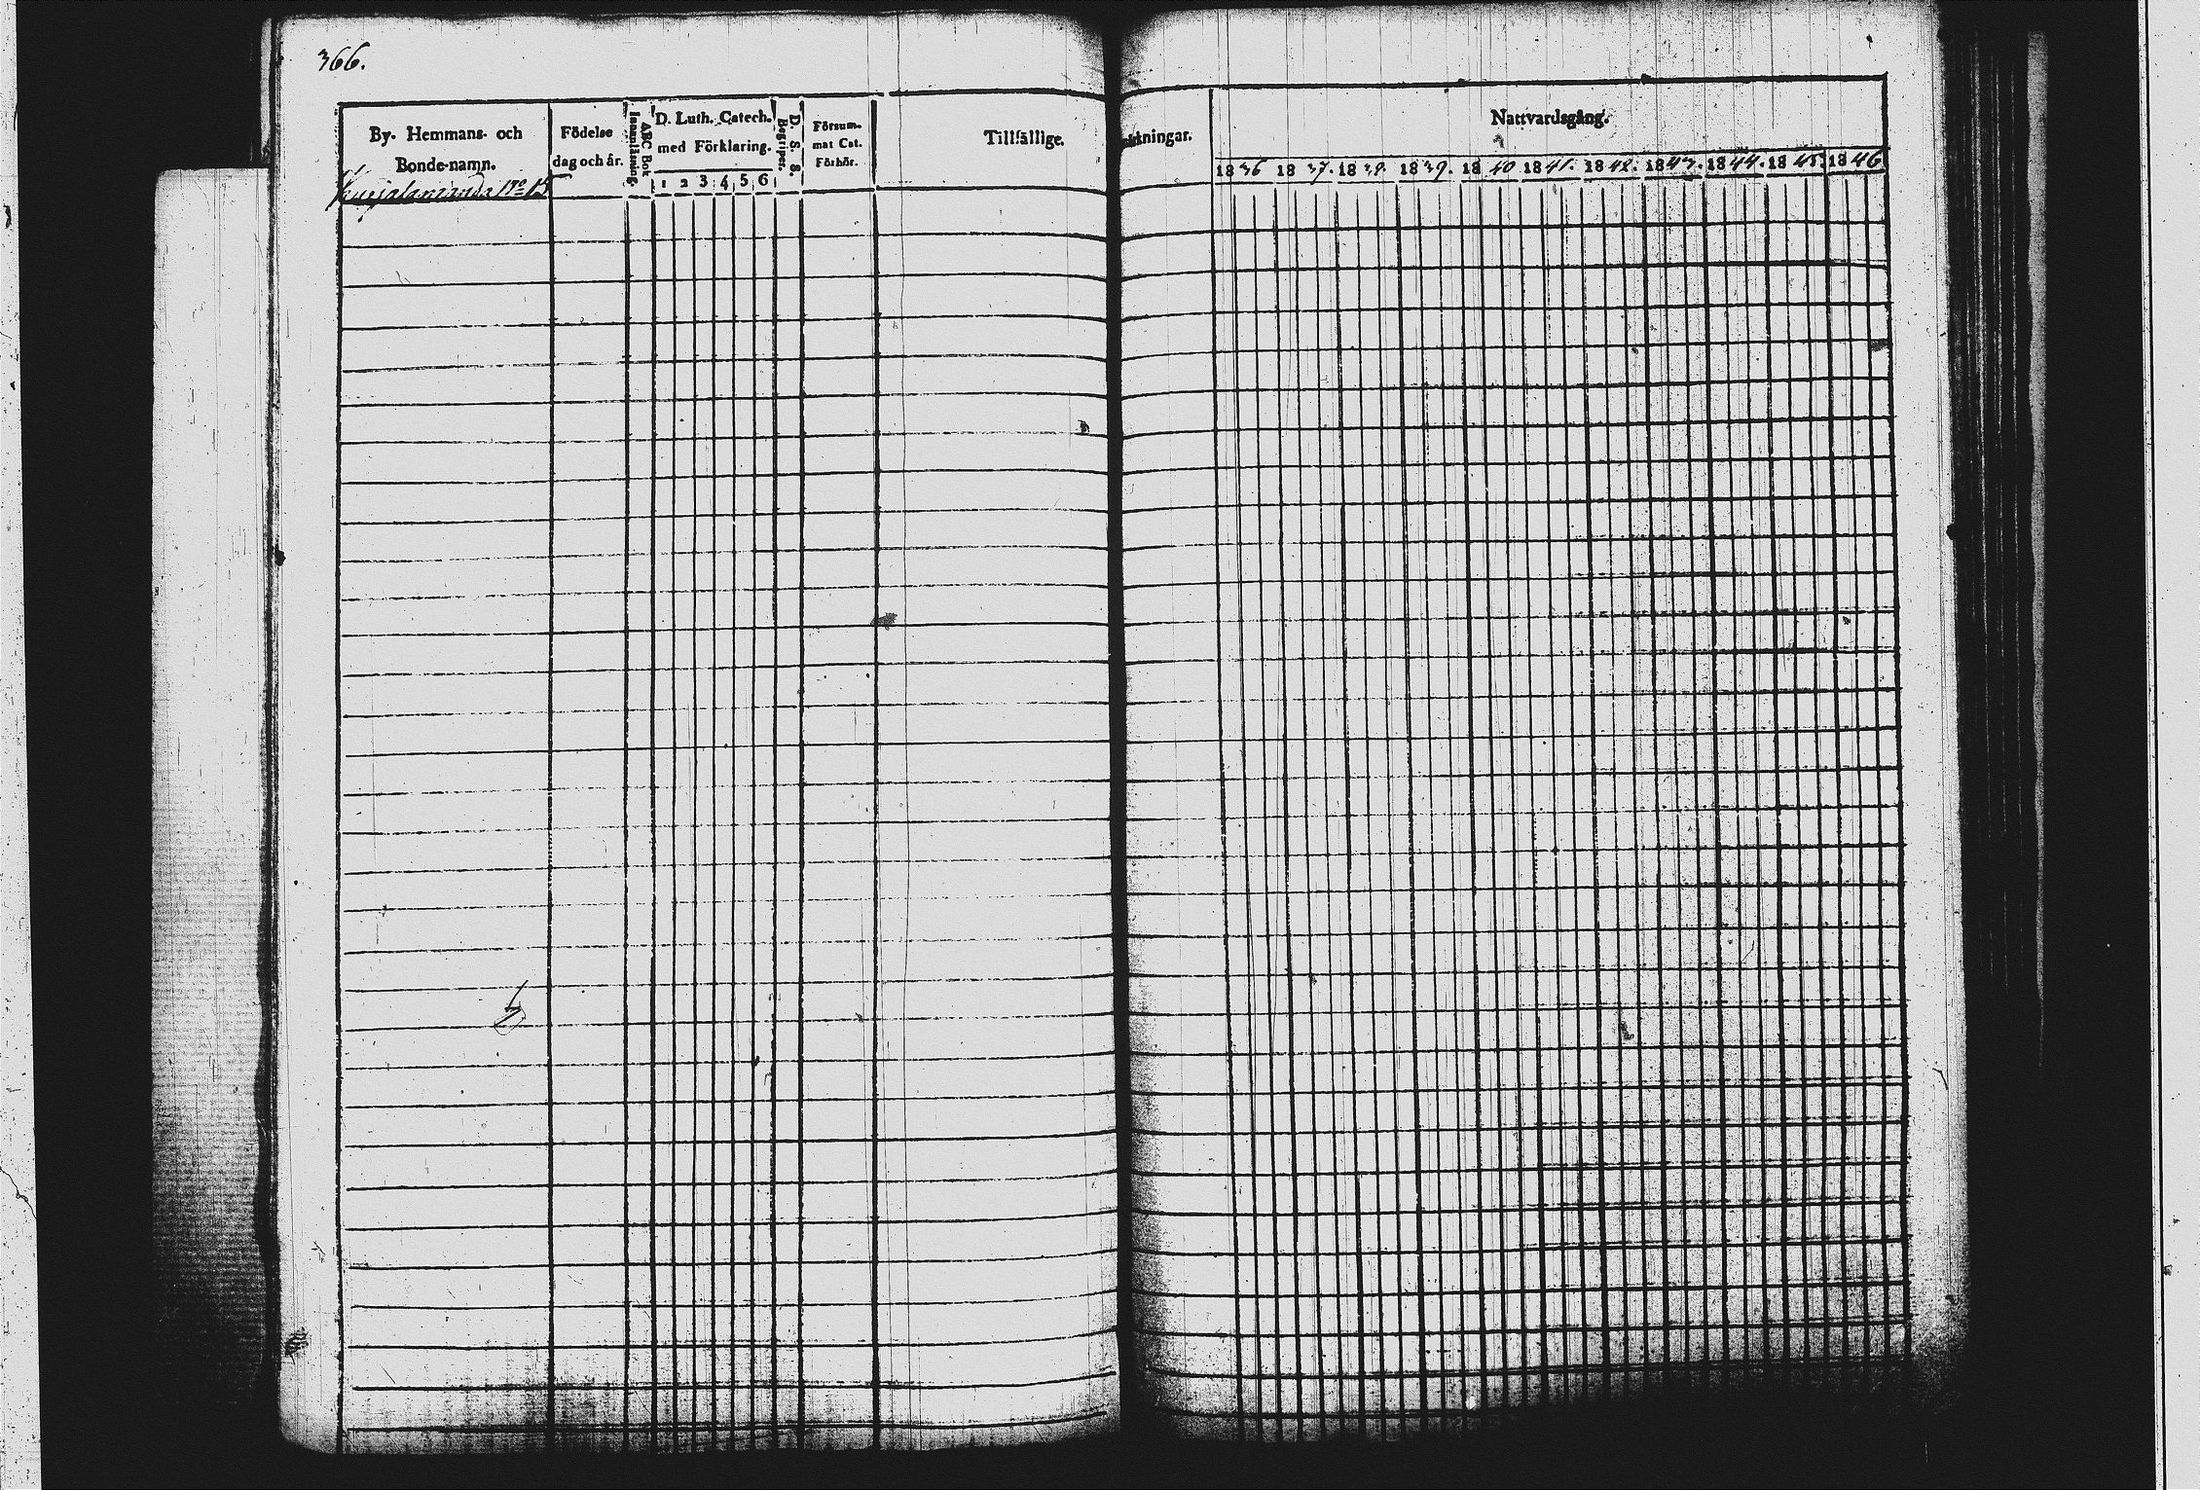 366.
By- Hemmans- och
Bonde-namn.
Födelse
dag och år.
ABC Bok
Innanläsning.
D. Luth. Catech.
med Förklaring.
1 2 3 4 5 6
D. S. S.
Begriper.
Försum-
mat Cat.
Förhör.
Tillfällige.
kningar.
Nattvardsgång.
1836 1837. 1838. 1839. 1840 1841. 1842. 1843. 1844. 1845. 1846
N:o 15